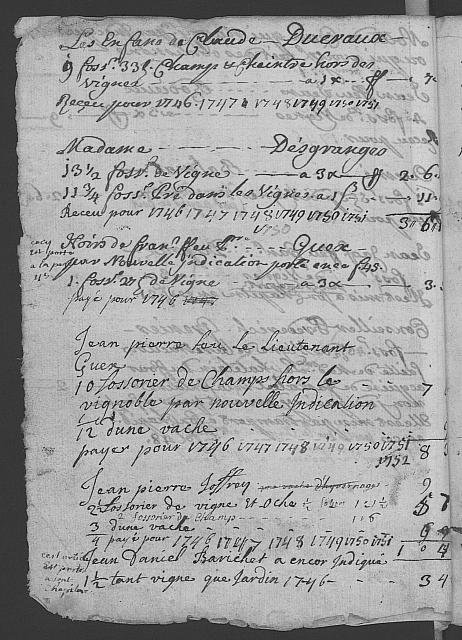 Les Enfans de Claude Ducraux
9 foss.rs 33 l. Champ & Cheintre hors des
Vignes a 1 x ff 7.
Receu pour 1746. 1747. 1748 1749 1750 1751
Madame Désgranges
13 1/2 foss.rs de Vigne a 3 x ff 2. 6.
11 3/4 foss.rs Pré dans les Vignes a 1 ß 11.
Receu pour 1746 1747 1748 1749 1750 1751 3" 6
1750
Hoirs de Fran.s feu Guex
par Nouvelle indication
1. foss.r de Vigne a 3 x 3.
payé pour 1746
Jean pierre feu le Lieutenant
Guex
10 fossorier de Champs hors le 7
vignoble par nouvelle Indication
1/2 dune vache
payer pour 1746 1747 1748 1749 1750 1751 8
1752
Jean pierre Joffrey
2 fossorier de vigne Et Oche
2 fossorier de Champ 1 6
3 dune vache
4 payé pour 1746 1747 1748 1749 1750 1751 1 0 4
cest article
est porté
Jean Daniel Barichet a encor Indiqué
1 1/2 tant vigne que Jardin 1746 3 4